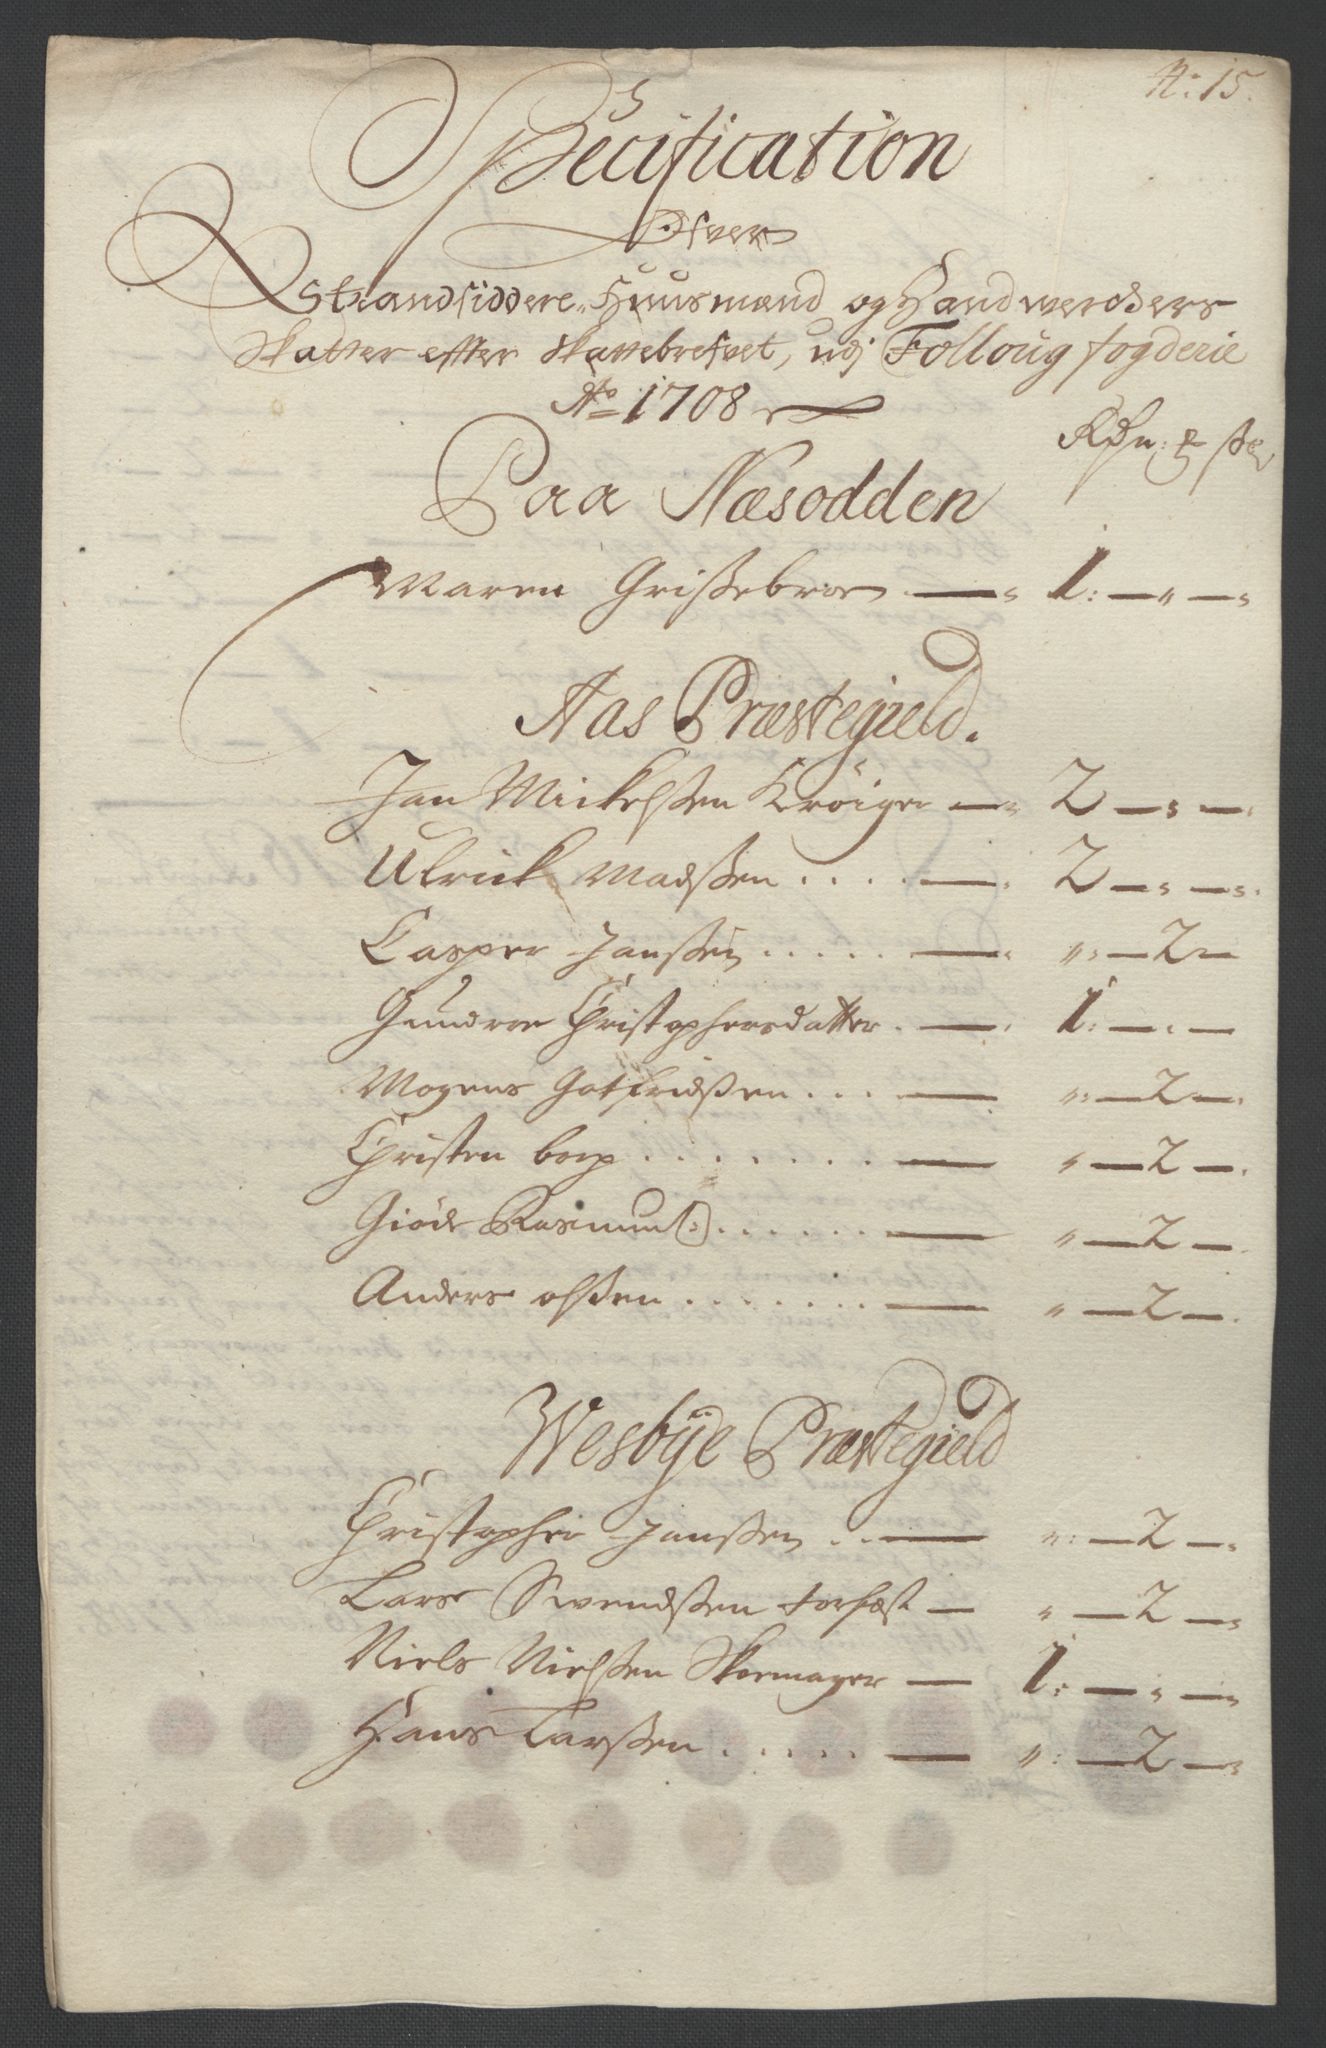 N: 15.
Specification
Ofver
Strandsiddere, Huusmænd og Handwerckers
Skatter efter Skattebrefvet, udj Folloug fogderie
Ao 1708
Rdr: ß
Paa Næsodden
Maren Grißebroe — 1: — " —
Aas Præstegield.
Jan Mickelßen Krøiger — 2 — " —
Ulrick Madßen . . . . — 2 — " —
Casper Janßen . . . . . — " : — 2 —
Gundroe Christophersdatter . — 1: — " —
Mogens Gotfridßen . . . — " : — 2 —
Christen borg . . . . . . . — " — 2 —
Giöde Rasmuß(:) . . . . . . — " — 2 —
Anders olßen . . . . . . . — " — 2 —
Wesbÿe Præstegield
Christopher Janßen . . — " : — 2 —
Lars Swendßen — " — 2 —
Niels Nielßen Skoemager — 1: — " —
Hans Larßen . . . . . — " : — 2 —